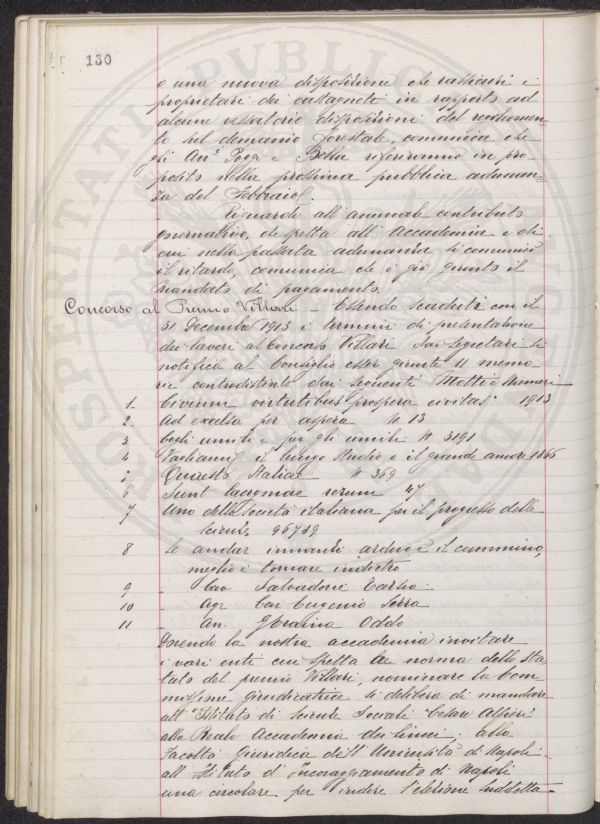 130
o una nuova disposizione che rassicuri i
proprietari dei castagneti in rapporto ad
alcune vessatorie disposizioni del regolamen-
to sul demanio forestale, comunica che
gli On. Poggi e Bella riferiranno in pro-
posito nella prossima pubblica adunan-
za del Febbraio.
Riguardo all'annuale contributo
governativo, che spetta all'Accademia e di
cui nella passata adunanza si comunicò
il ritardo, comunica che è già giunto il
mandato di pagamento.
Concorso al Premio Villari - Essendo scaduti con il
31 Decembre 1913 i termini di presentazione
dei lavori al Concorso Villari dai segretari si
notifica al Consiglio esser giunte 11 memo-
rie contradistinte dai seguenti Motti e Numeri
1 Civium virtutibus prospera civitas 1913
2 Ad excelsa per aspera N 13
3 Cogli umili e per gli umili N 3191
4 il lungo studio e il grande amore 1866
5 Italiae N 369
6 Sunt lacrymae rerum 47
7 Uno della Società italiana per il progresso delle
Scienze 96789
8 Se andar innanti arduo è il cammino,
meglio è tornare indietro
9 - Cav Salvadore
10 - Agr Cav Eugenio Serra
11 - Av. Oddo
Dovendo la nostra accademia invitare
i vari enti cui spetta a norma dello Sta-
tuto del premio Villari, nominare la Com-
missione giudicatrice si delibera di mandare
all'Istituto di Scienze Sociali "Cesare Alfieri"
alla Reale Accademia dei Lincei; alla
Facoltà Giuridica dell'Università di Napoli -
all'Istituto d'Incoraggiamento di Napoli
una circolare per indire l'elezione suddetta -
HOSPERITATI PVBLICAE